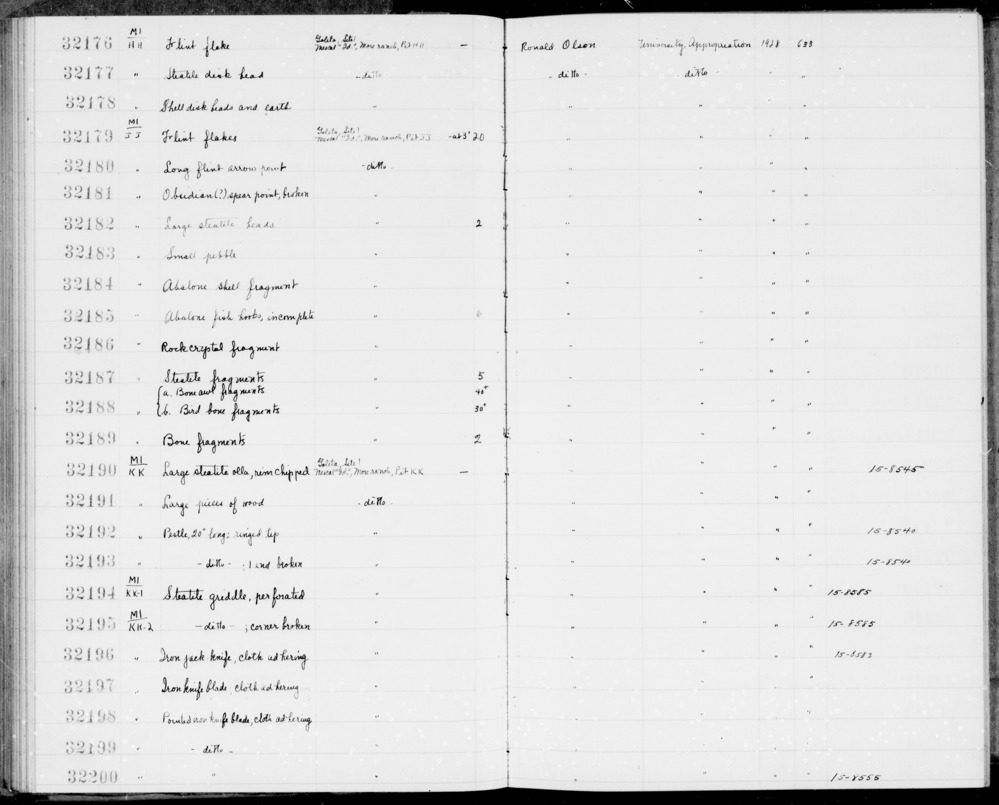 32176 MI/HH Flint flake Goleta, Site! Mescal "Id.", More ranch, Pit HH — Ronald Olson University Appropriation 1928 633
32177 " Steatite disk bead - ditto - ditto - ditto " "
32178 " Shell disk beads and earth " " " " "
32179 MI/JJ Flint flakes Goleta, Site! Mescal "Id.", More ranch, Pit JJ - at 3' 20 " " " "
32180 " Long flint arrow point - ditto - " " " "
32181 " Obsidian(?) spear point, broken " " " " "
32182 " Large steatite beads " 2 " " " "
32183 " Small pebble " " " " "
32184 " Abalone shell fragment " " " " "
32185 " Abalone fish hooks, incomplete " 6 " " " "
32186 " Rock crystal fragment " " " " "
32187 " Steatite fragments " 5 " " " "
{a. Bone awl fragments 40+
32188 " {b. Bird bone fragments " 30+ " " " "
32189 " Bone fragments " 2 " " " "
32190 MI/KK Large steatite olla, rim chipped Goleta, Site! Mescal "Id.", More ranch, Pit KK — " " " " 15-8545
32191 " Large pieces of wood - ditto - " " " "
32192 " Pestle, 20" long; ringed tip " " " " " 15-8540
32193 " - ditto - ; 1 end broken " " " " " 15-8540
32194 MI/KK-1 Steatite griddle, perforated " " " " " 15-8585
32195 MI/KK-2 - ditto - ; corner broken " " " " " 15-8585
32196 " Iron jack knife, cloth adhering " " " " " 15-8583
32197 " Iron knife blade, cloth adhering " " " " "
32198 " Pointed iron knife blade, cloth adhering " " " " "
32199 " - ditto - " " " " "
32200 " " " " " " " 15-8555